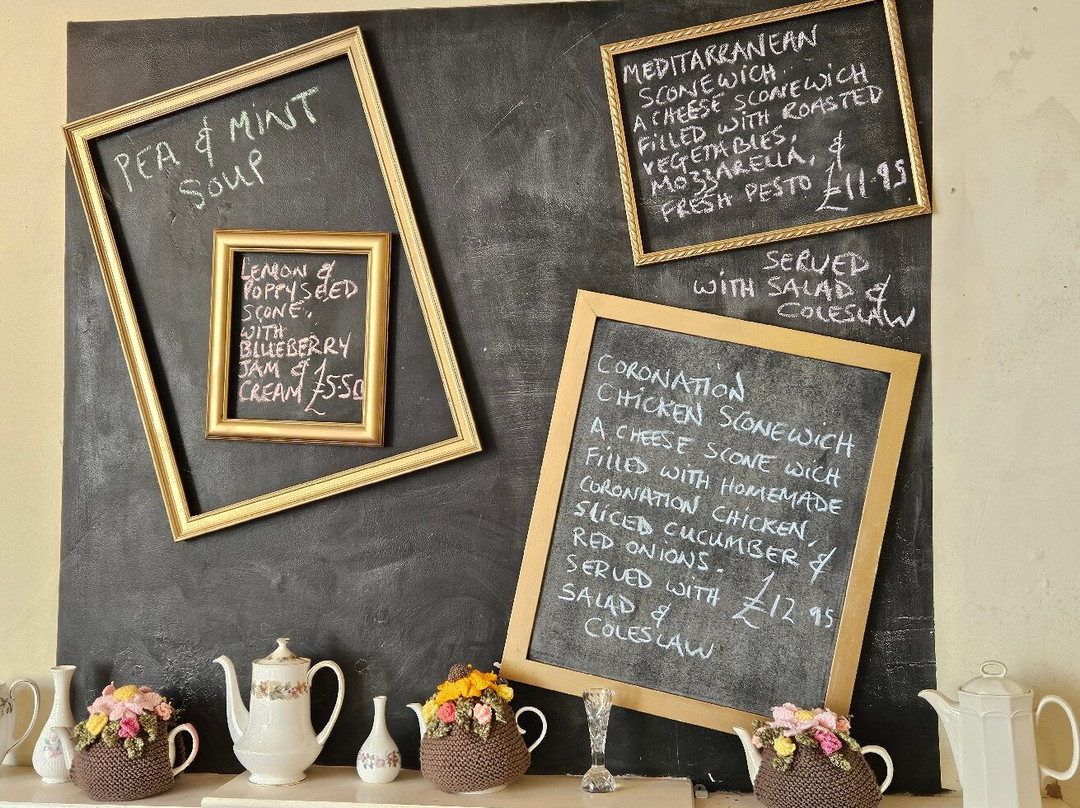 PEA & MINT
SOUP
LEMON &
POPPYSEED
SCONE.
WITH
BLUEBERRY
JAM &
CREAM £5.50
MEDITARRANEAN
SCONEWICH
A CHEESE SCONEWICH
FILLED WITH ROASTED
VEGETABLES,
MOZZARELLA, &
FRESH PESTO £11.95
SERVED
WITH SALAD &
COLESLAW
CORONATION
CHICKEN SCONEWICH
A CHEESE SCONE WICH
FILLED WITH HOMEMADE
CORONATION CHICKEN,
SLICED CUCUMBER &
RED ONIONS.
SERVED WITH £12.95
SALAD &
COLESLAW